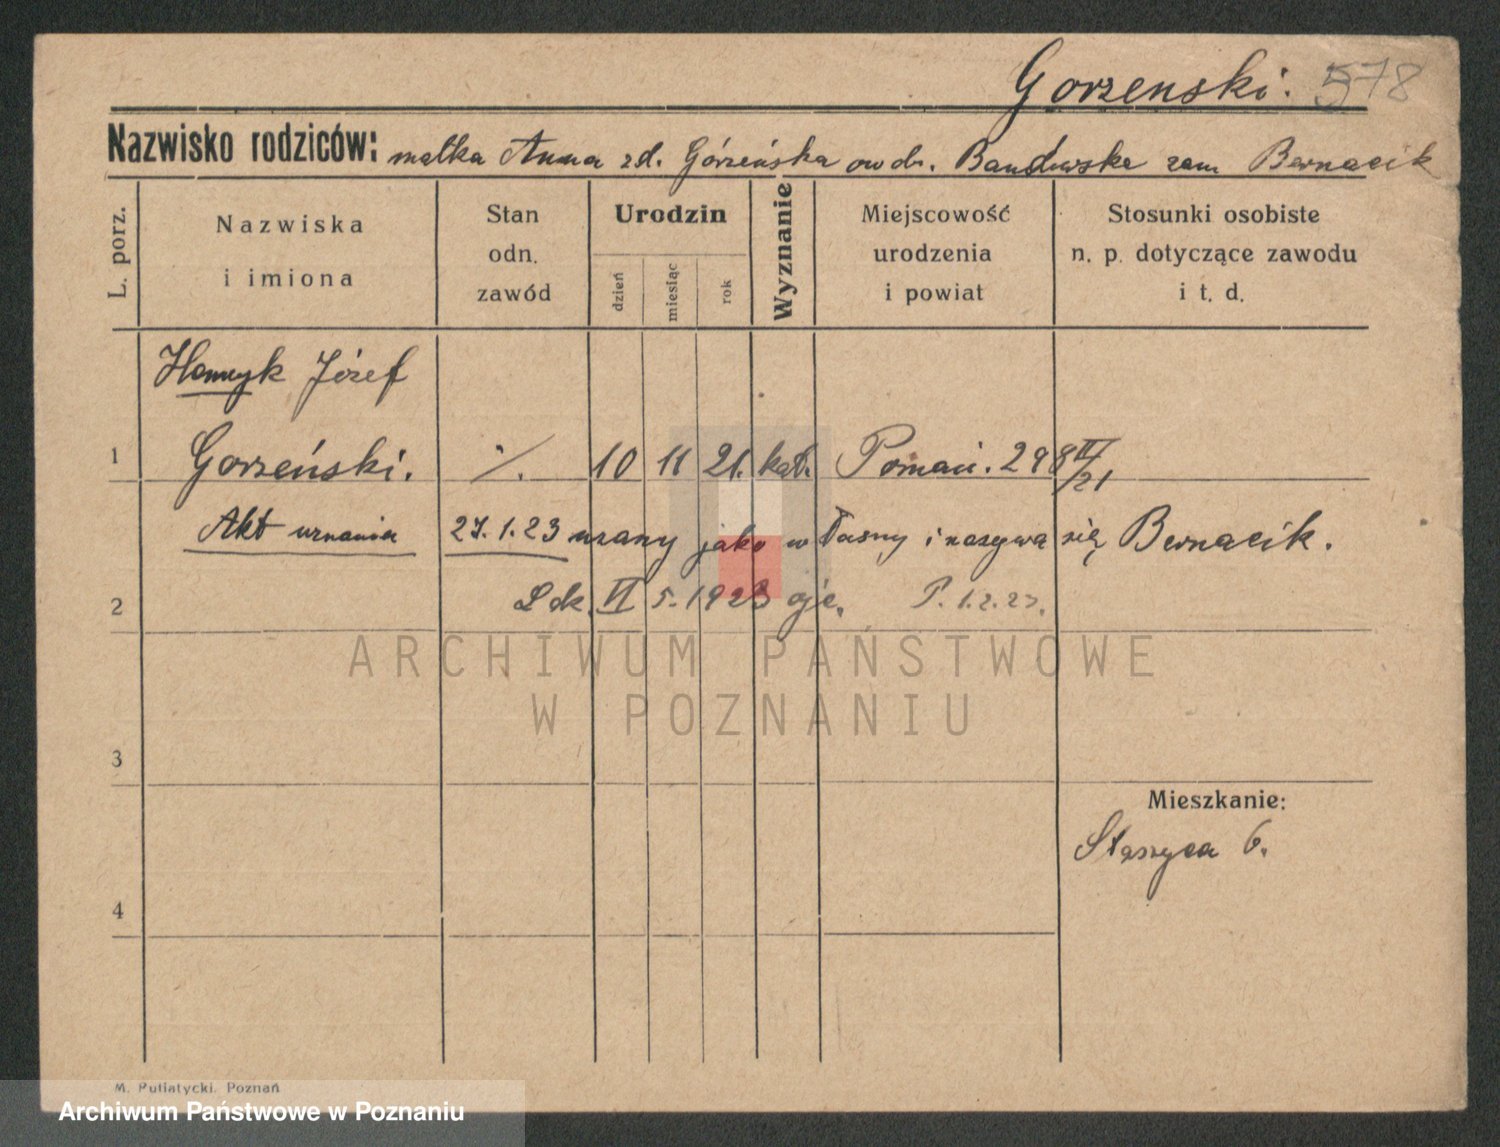 Gorzenski. 578
Nazwisko rodziców: matka Anna zd. Górzeńska owd. Bandurska zam Bernacik
L. porz.
Nazwiska
i imiona
Stan
odn.
zawód
Urodzin
dzień
miesiąc
rok
Wyznanie
Miejscowość
urodzenia
i powiat
Stosunki osobiste
n. p. dotyczące zawodu
i t. d.
Henryk Józef
1 Gorzeński. ·/. 10 11 21. kat. Poznań. 298 II/21
Akt uznania 27.1.23 uznany jako własny i nazywa się Bernacik.
2 VI 5. 1923 P. 1.2.23.
3
Mieszkanie:
Staszyca 6.
4
M. Putiatycki. Poznań
ARCHIWUM PAŃSTWOWE
W POZNANIU
Archiwum Państwowe w Poznaniu